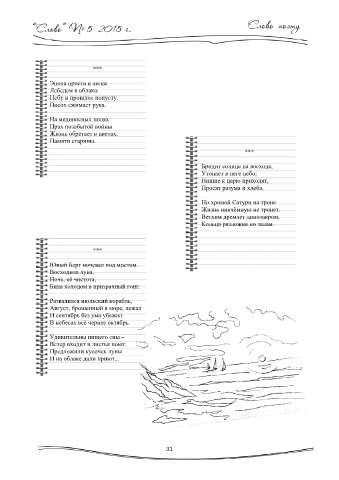 "Слово" № 5 2015 г.
Слово поэту
***
Эпоха проста и легка.
Лебедем в облака.
Небу и прошлое попусту.
Посох сжимает рука.
На медоносных полях
Прах позабытой войны
Жизнь обретает в цветах,
Памяти старины.
***
Бродит солнце на восходе,
Утопает в неге небо;
Нищие к царю приходят,
Просят разума и хлеба.
Но хромой Сатурн на троне
Жизнь никчёмную не тронет.
Ветхим дремлет динозавром,
Кольца разложив по лапам.
***
Юный Берг ночевал под мостом.
Восходила луна.
Ночь, её чистота,
Била холодом в призрачный гонг.
Развалился июльский корабль,
Август, брошенный в море, лежал
И сентябрь без ума убежал.
В небесах всё чернее октябрь.
Удивительны нищего сны –
Ветер входит в листья поют.
Предложили кусочек луны
И на облаке дали приют...
31